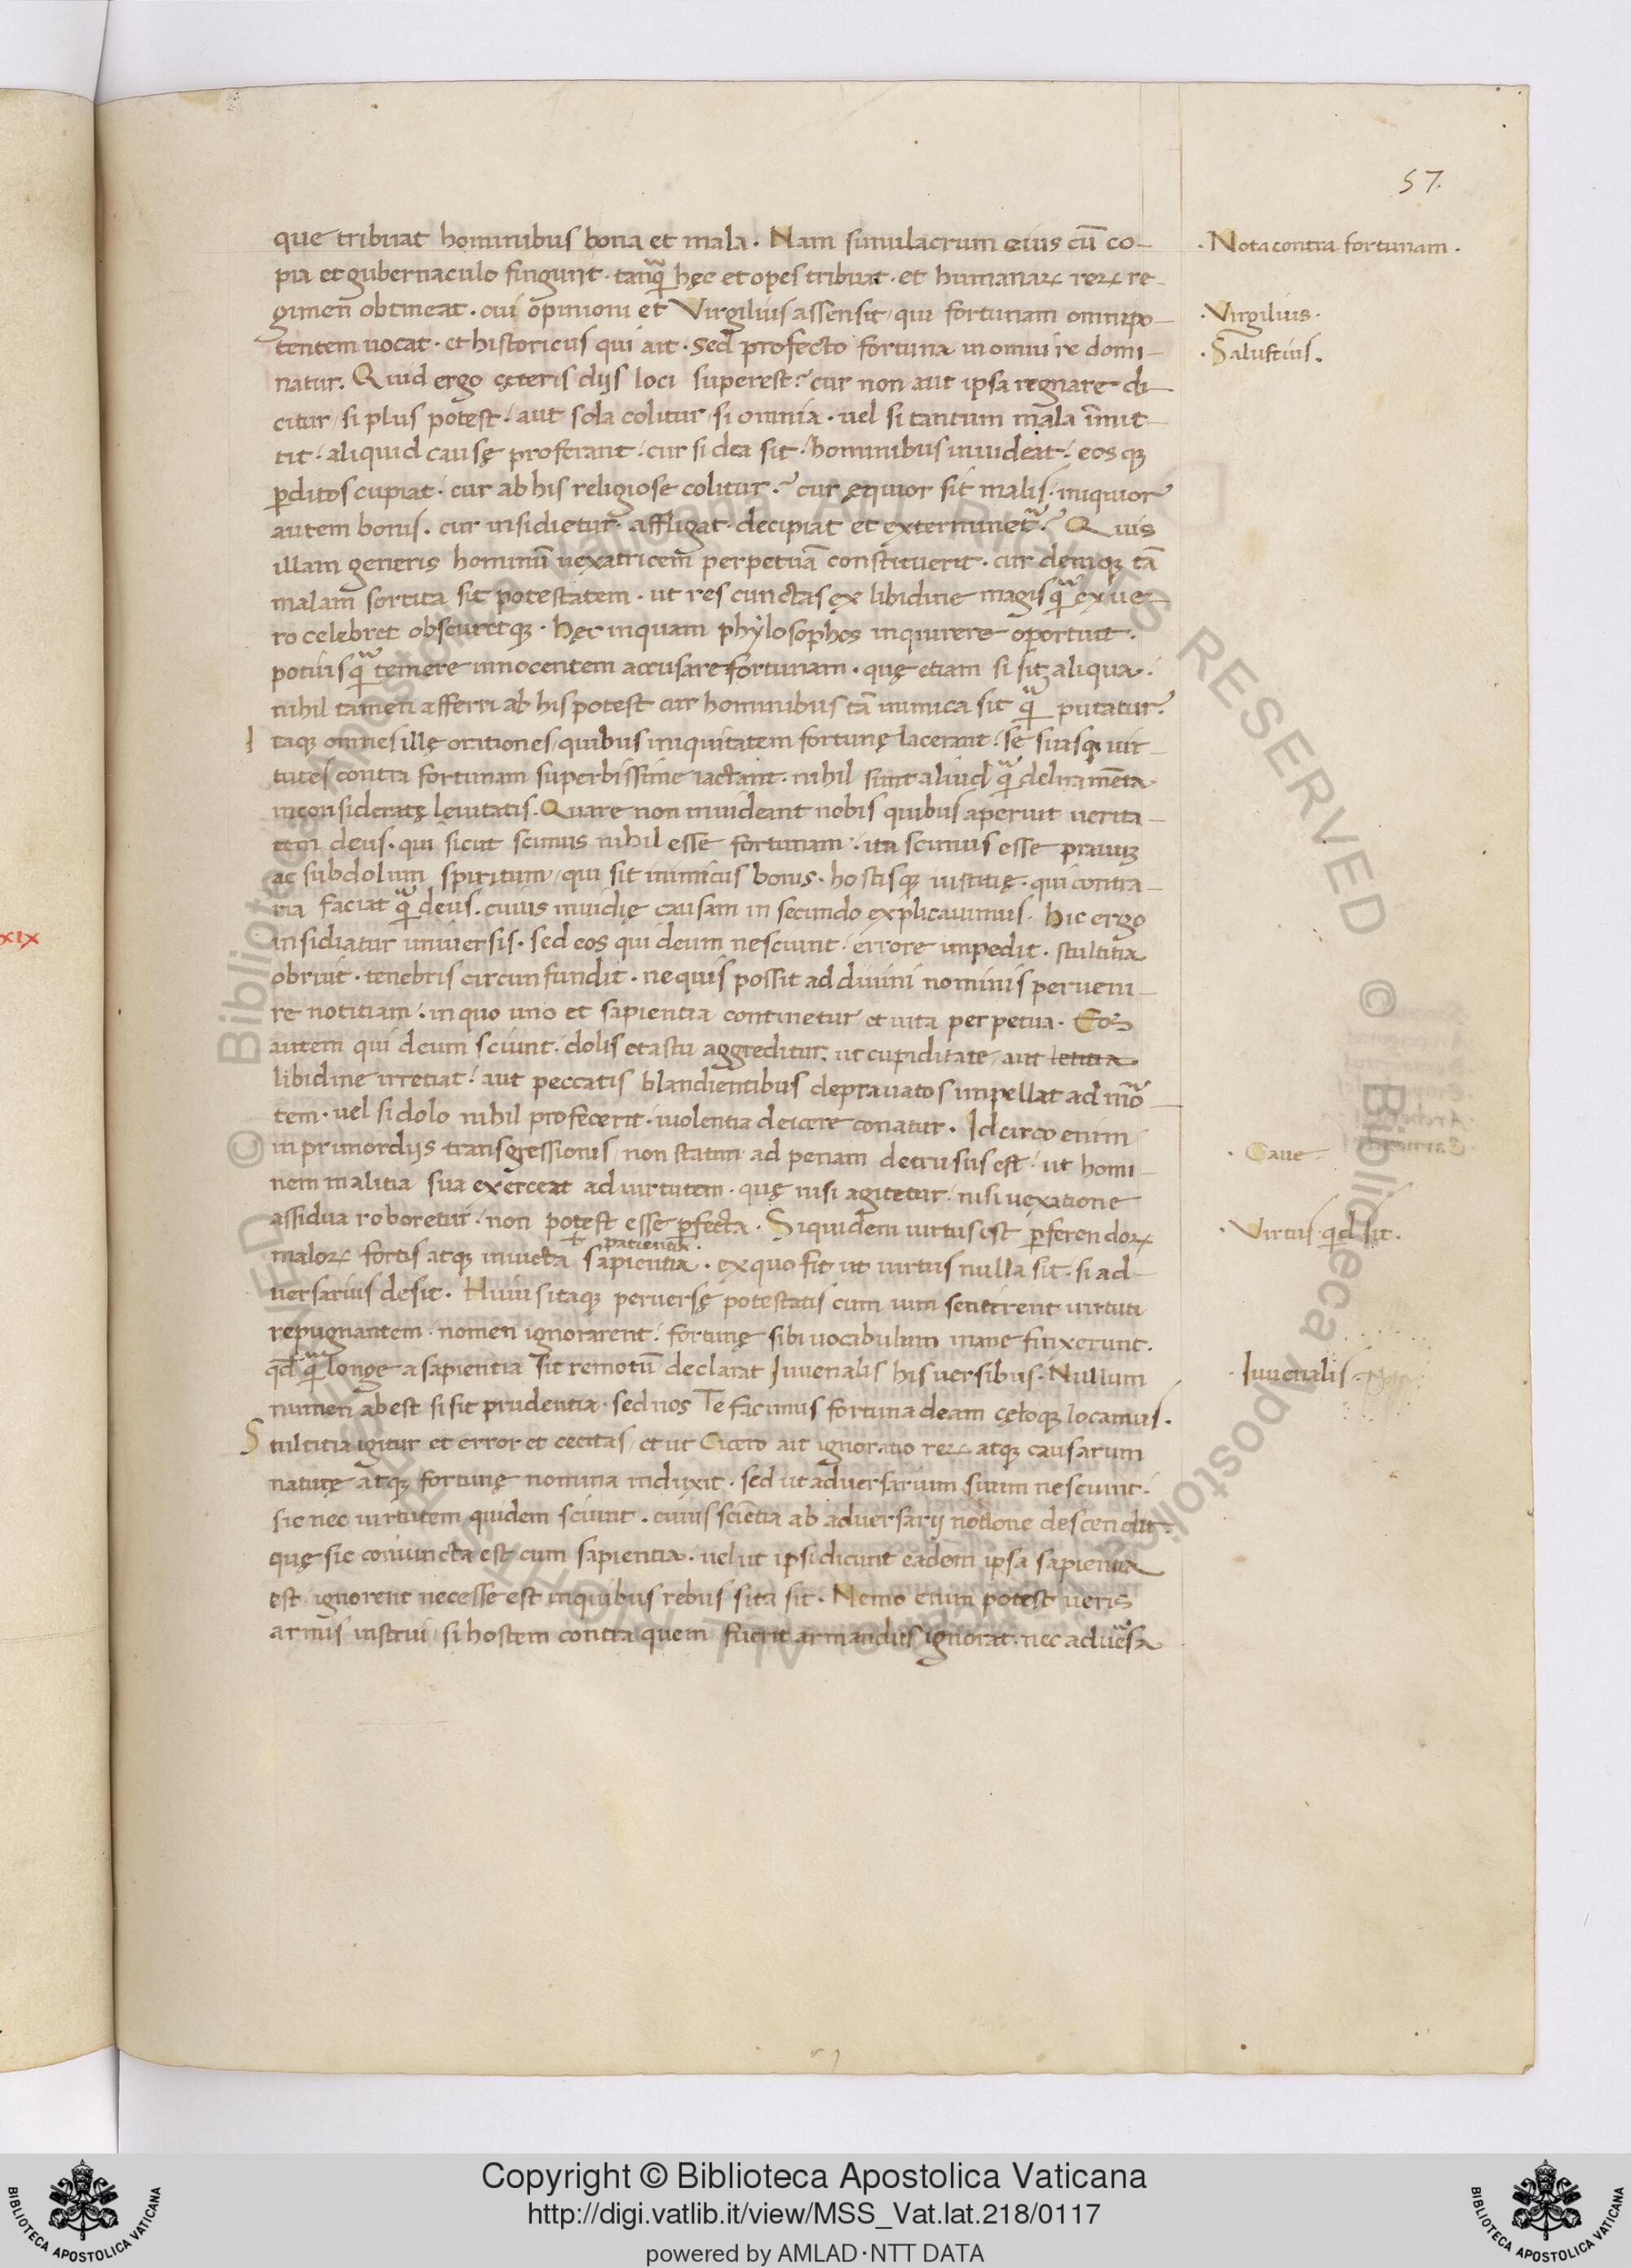 57.
que tribuat hominibus bona et mala. Nam simulacrum eius cũ co-
pia et gubernaculo fingunt. tanq̃ hęc et opes tribuat. et humanaꝝ reꝝ re-
gimen obtineat. cui opinioni et Virgilius assensit, qui fortunam omnipo-
tentem uocat. et historicus qui ait. Sed profecto fortuna in omni re domi-
natur. Quid ergo cęteris diis loci superest? cur non aut ipsa regnare di-
citur, si plus potest. aut sola colitur, si omnia. uel si tantum mala ĩmit-
tit. aliquid causę proferant. cur si dea sit. hominibus inuideat. eosqꝫ
ꝑditos cupiat. cur ab his religiose colitur? cur ęquior sit malis. iniquior
autem bonis. cur insidietur. affligat. decipiat et exterminet? Quis
illam generis hominũ uexatricem perpetuã constituerit. cur deniqꝫ tã
malam sortita sit potestatem. ut res cunctas ex libidine magis q̃ ex ue-
ro celebret obscuretqꝫ. Hęc inquam phylosophos inquirere oportuit.
potius q̃ temere innocentem accusare fortunam. quę etiam si sit aliqua.
nihil tamen afferri ab his potest cur hominibus tã inimica sit q̃ putatur.
Itaqꝫ omnes illę orationes, quibus iniquitatem fortunę lacerant. se suasqꝫ uir-
tutes contra fortunam superbissime iactant. nihil sunt aliud q̃ deliramẽta
inconsideratę leuitatis. Quare non inuideant nobis quibus aperuit uerita-
tem deus. qui sicut scimus nihil esse fortunam. ita scimus esse prauuꝫ
ac subdolum spiritum, qui sit inimicus bonis. hostisqꝫ iustitię. qui contra-
ria faciat q̃ deus. cuius inuidię causam in secundo explicauimus. Hic ergo
insidiatur uniuersis. sed eos qui deum nesciunt. errore impedit. stultitia
obruit. tenebris circunfundit. ne quis possit ad diuini nominis perueni-
re notitiam. in quo uno et sapientia continetur et uita perpetua. Eos
autem qui deum sciunt. dolis et astu aggreditur. ut cupiditate, aut letitia
libidine irretiat. aut peccatis blandientibus deprauatos impellat ad mõ-
tem. uel si dolo nihil profecerit. uiolentia deicere conatur. Idcirco enim
in primordiis transgressionis, non statim ad penam detrusus est. ut homi-
nem malitia sua exerceat ad uirtutem. quę nisi agitetur. nisi uexatione
assidua roboretur. non potest esse ꝑfecta. Siquidem uirtus est ꝑferendoꝝ
patientia.
maloꝝ fortis atqꝫ inuicta sapientia. ex quo fit ut uirtus nulla sit. si ad-
uersarius desit. Huius itaqꝫ peruersę potestatis cum uim sentirent uirtuti
repugnantem. nomen ignorarent. fortunę sibi uocabulum inane finxerunt.
qđ q̃ longe a sapientia sit remotũ, declarat Iuuenalis his uersibus. Nullum
numen abest si sit prudentia. sed nos Te facimus fortuna deam cęloqꝫ locamus.
Stultitia igitur et error et cecitas, et ut Cicero ait ignoratio reꝝ atqꝫ causarum
naturę atqꝫ fortunę nomina induxit. sed ut aduersarium suum nesciunt.
sic nec uirtutem quidem sciunt. cuius sciẽtia ab aduersarij notione descendit.
quę sic coniuncta est cum sapientia. uel ut ipsi dicunt eadem ipsa sapientia
est. ignorent necesse est in quibus rebus sita sit. Nemo enim potest ueris
armis instrui, si hostem contra quem fuerit armandus ignorat. nec aduersa
.Nota contra fortunam.
.Virgilius.
.Salustius.
.Caue.
.Virtus qd sit.
.Iuuenalis.
xix
© Biblioteca Apostolica Vaticana ALL RIGHTS RESERVED
Copyright © Biblioteca Apostolica Vaticana
http://digi.vatlib.it/view/MSS_Vat.lat.218/0117
powered by AMLAD·NTT DATA
BIBLIOTECA APOSTOLICA VATICANA
BIBLIOTECA APOSTOLICA VATICANA